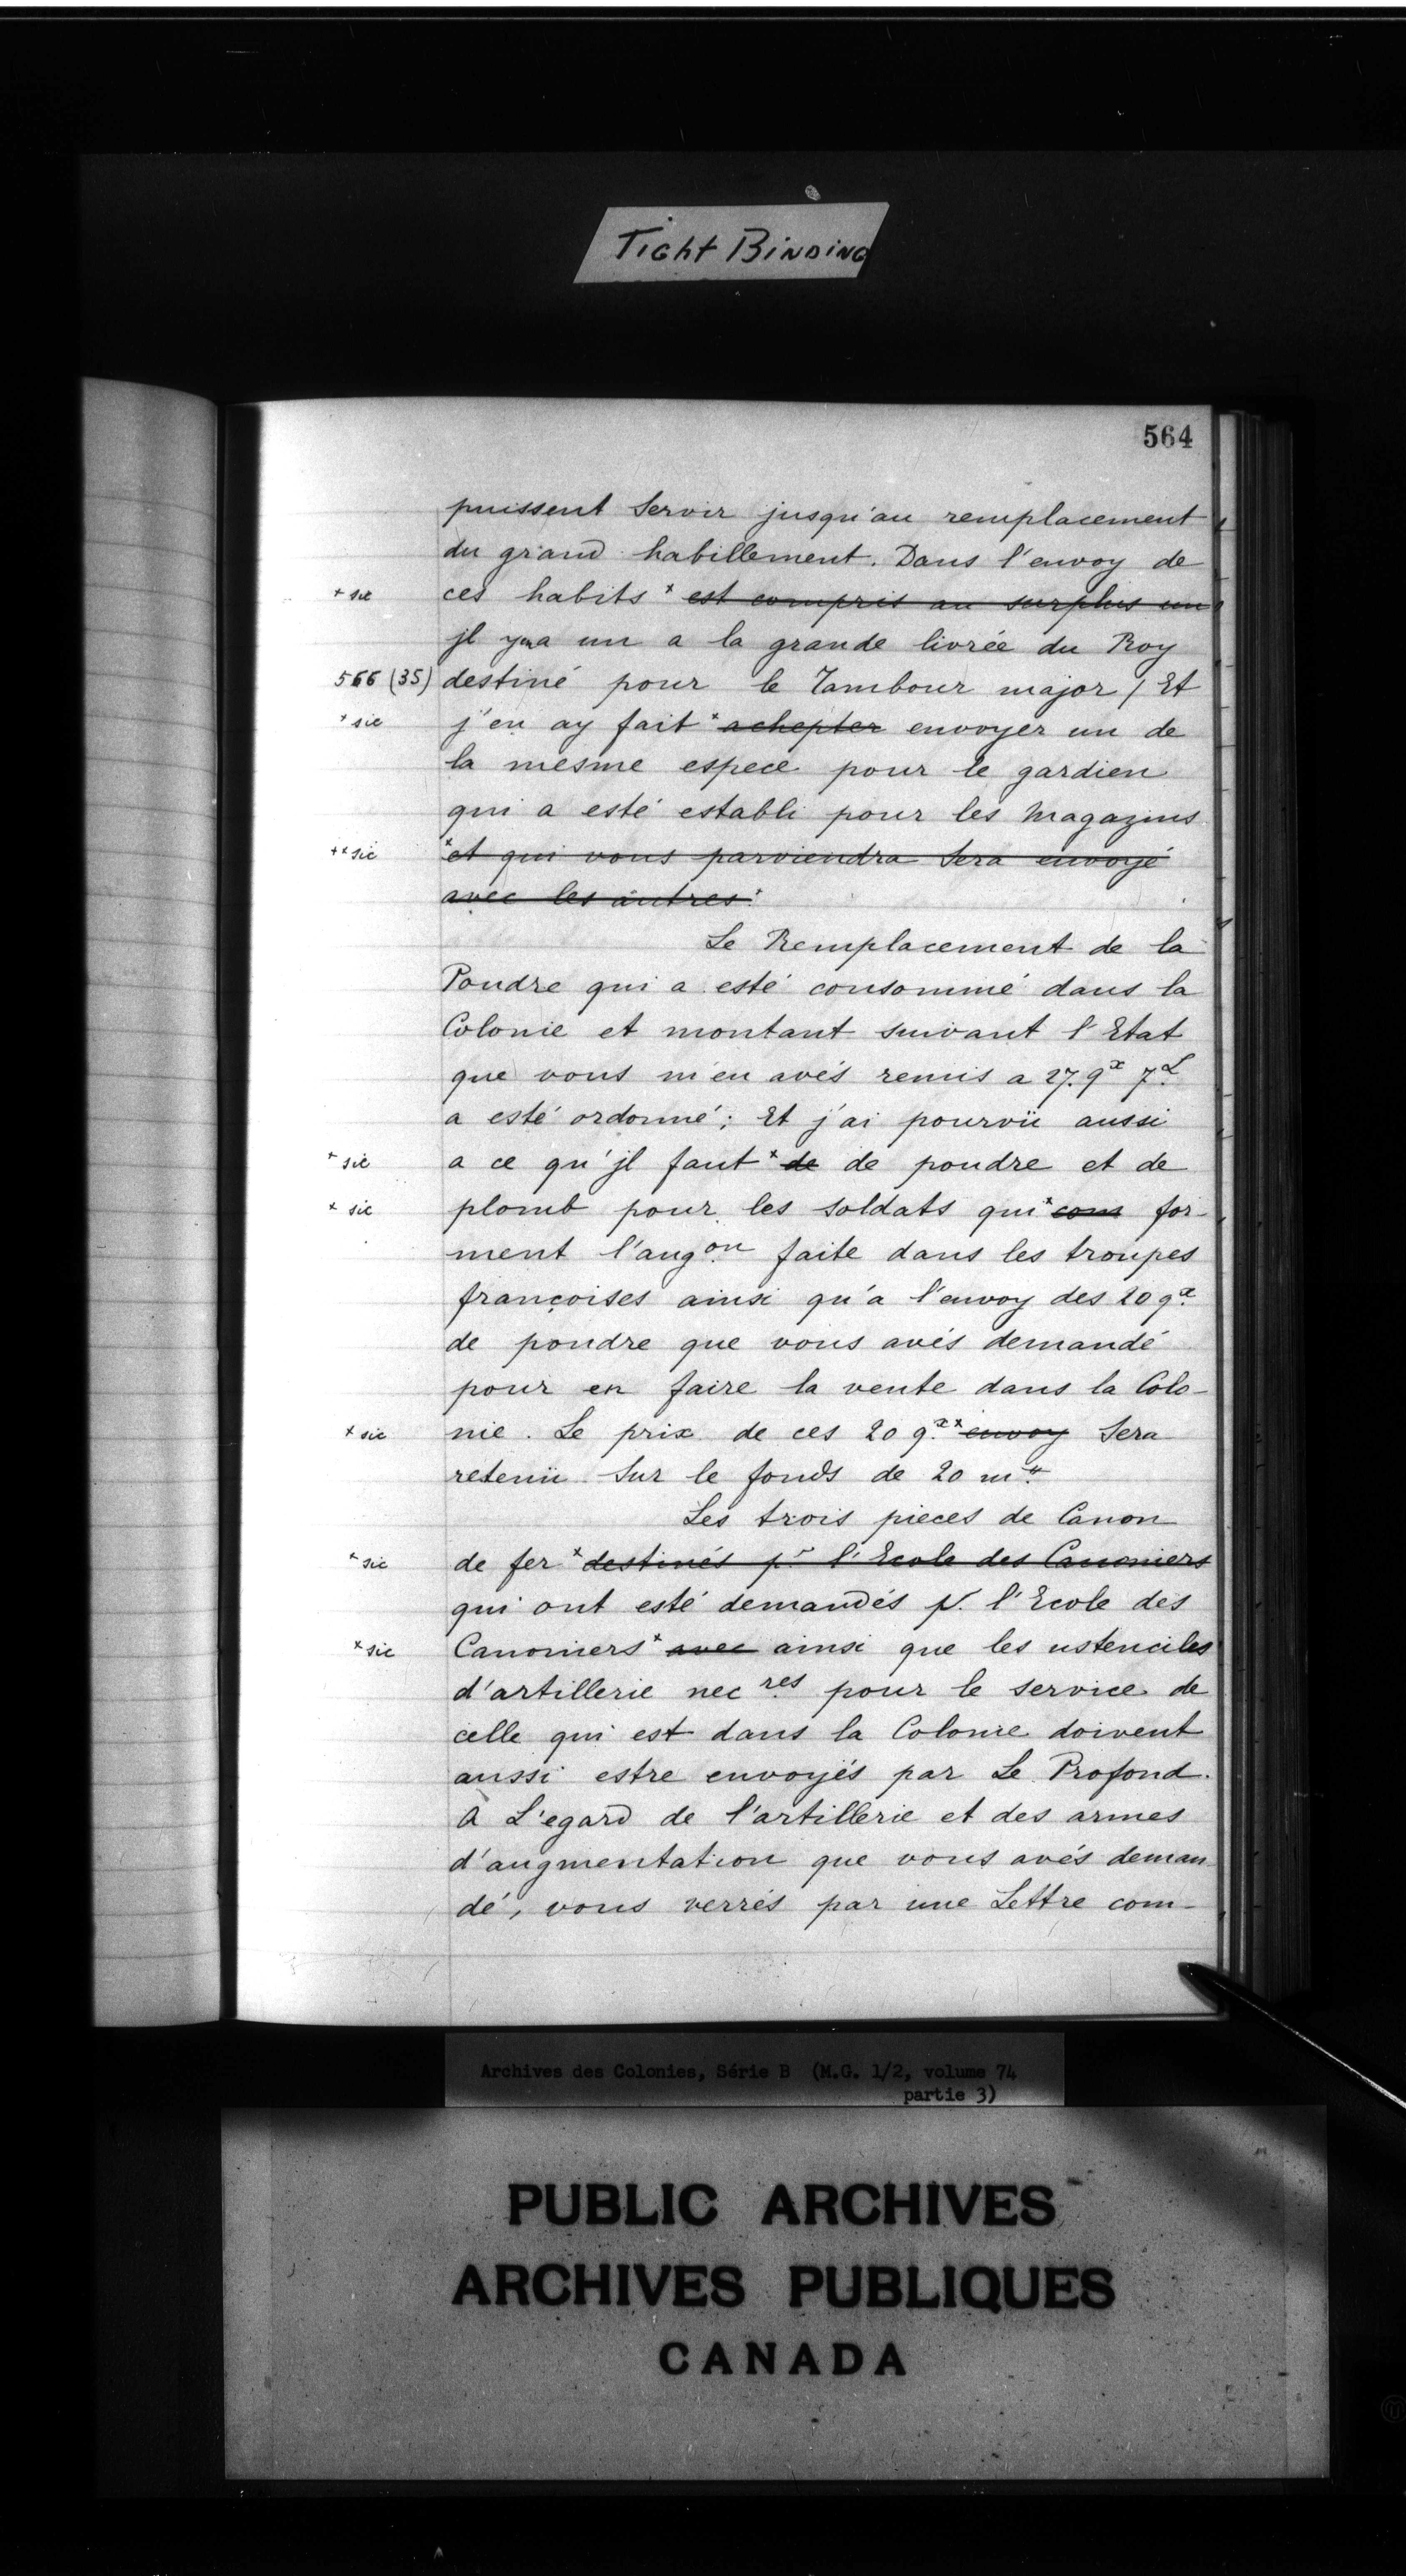 Tight Binding
564
puissent servir jusqu'au remplacement
du grand habillement. Dans l'envoy de
+ sic ces habits x est compris au surplus un
jl y en a un a la grande livrée du Roy
566 (35) destiné pour le Tambour major / Et
x sic j'en ay fait x achepter envoyer un de
la mesme espece pour le gardien
qui a esté establi pour les magazins
x x sic x et qui vous parviendra sera envoyé
avec les autres x
Le Remplacement de la
Poudre qui a esté consommé dans la
Colonie et montant suivant l'Etat
que vous m'en avés remis a 27. qx 7L
a esté ordonné; Et j'ai pourvü aussi
x sic a ce qu'jl faut x de de poudre et de
x sic plomb pour les soldats qui x com for-
ment l'augon faite dans les troupes
françoises ainsi qu'a l'envoy des 20 qx
de poudre que vous avés demandé
pour en faire la vente dans la Colo-
x sic nie. Le prix de ces 20 qx x envoy sera
retenü sur le fonds de 20 m#
Les trois pieces de Canon
x sic de fer x destinés pr l'Ecole des Canoniers
qui ont esté demandés pr. l'Ecole des
x sic Canoniers x avec ainsi que les ustenciles
d'artillerie necres pour le service de
celle qui est dans la Colonie doivent
aussi estre envoyés par Le Profond.
A L'egard de l'artillerie et des armes
d'augmentation que vous avés deman
dé, vous verrés par une Lettre com-
Archives des Colonies, Série B (M.G. 1/2, volume 74
partie 3)
PUBLIC ARCHIVES
ARCHIVES PUBLIQUES
CANADA